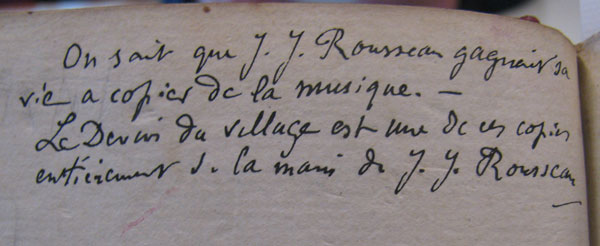 On sait que J. J. Rousseau gagnait sa
vie a copier de la musique. —
Le Devin du village est une de ces copies
entièrement d. la main de J. J. Rousseau